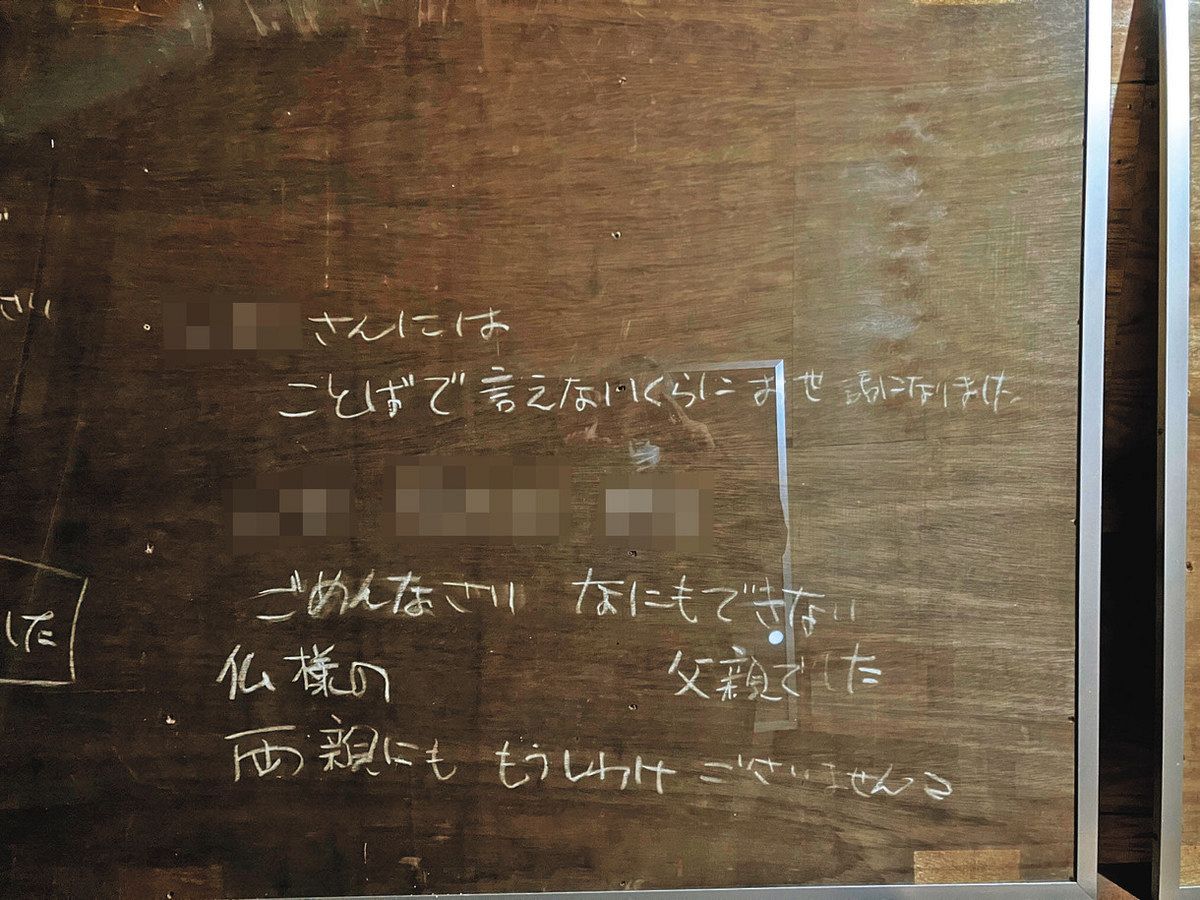 さい
さんには
ことばで言えないくらにお世話になりました
ごめんなさい なにもできない
した
仏様の 父親でした
両親にも もうしわけございません